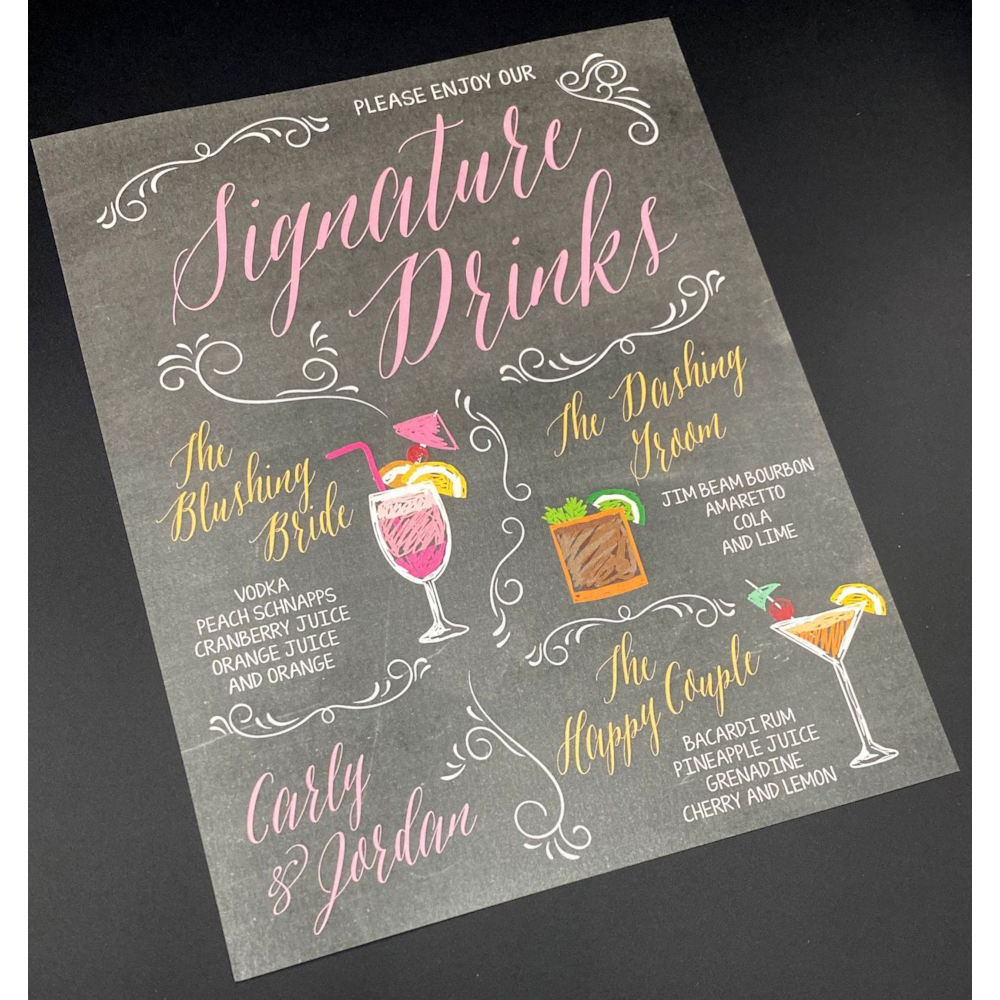 PLEASE ENJOY OUR
Signature
Drinks
The
Blushing
Bride
VODKA
PEACH SCHNAPPS
CRANBERRY JUICE
ORANGE JUICE
AND ORANGE
The Dashing
Groom
JIM BEAM BOURBON
AMARETTO
COLA
AND LIME
The
Happy Couple
BACARDI RUM
PINEAPPLE JUICE
GRENADINE
CHERRY AND LEMON
Carly
& Jordan